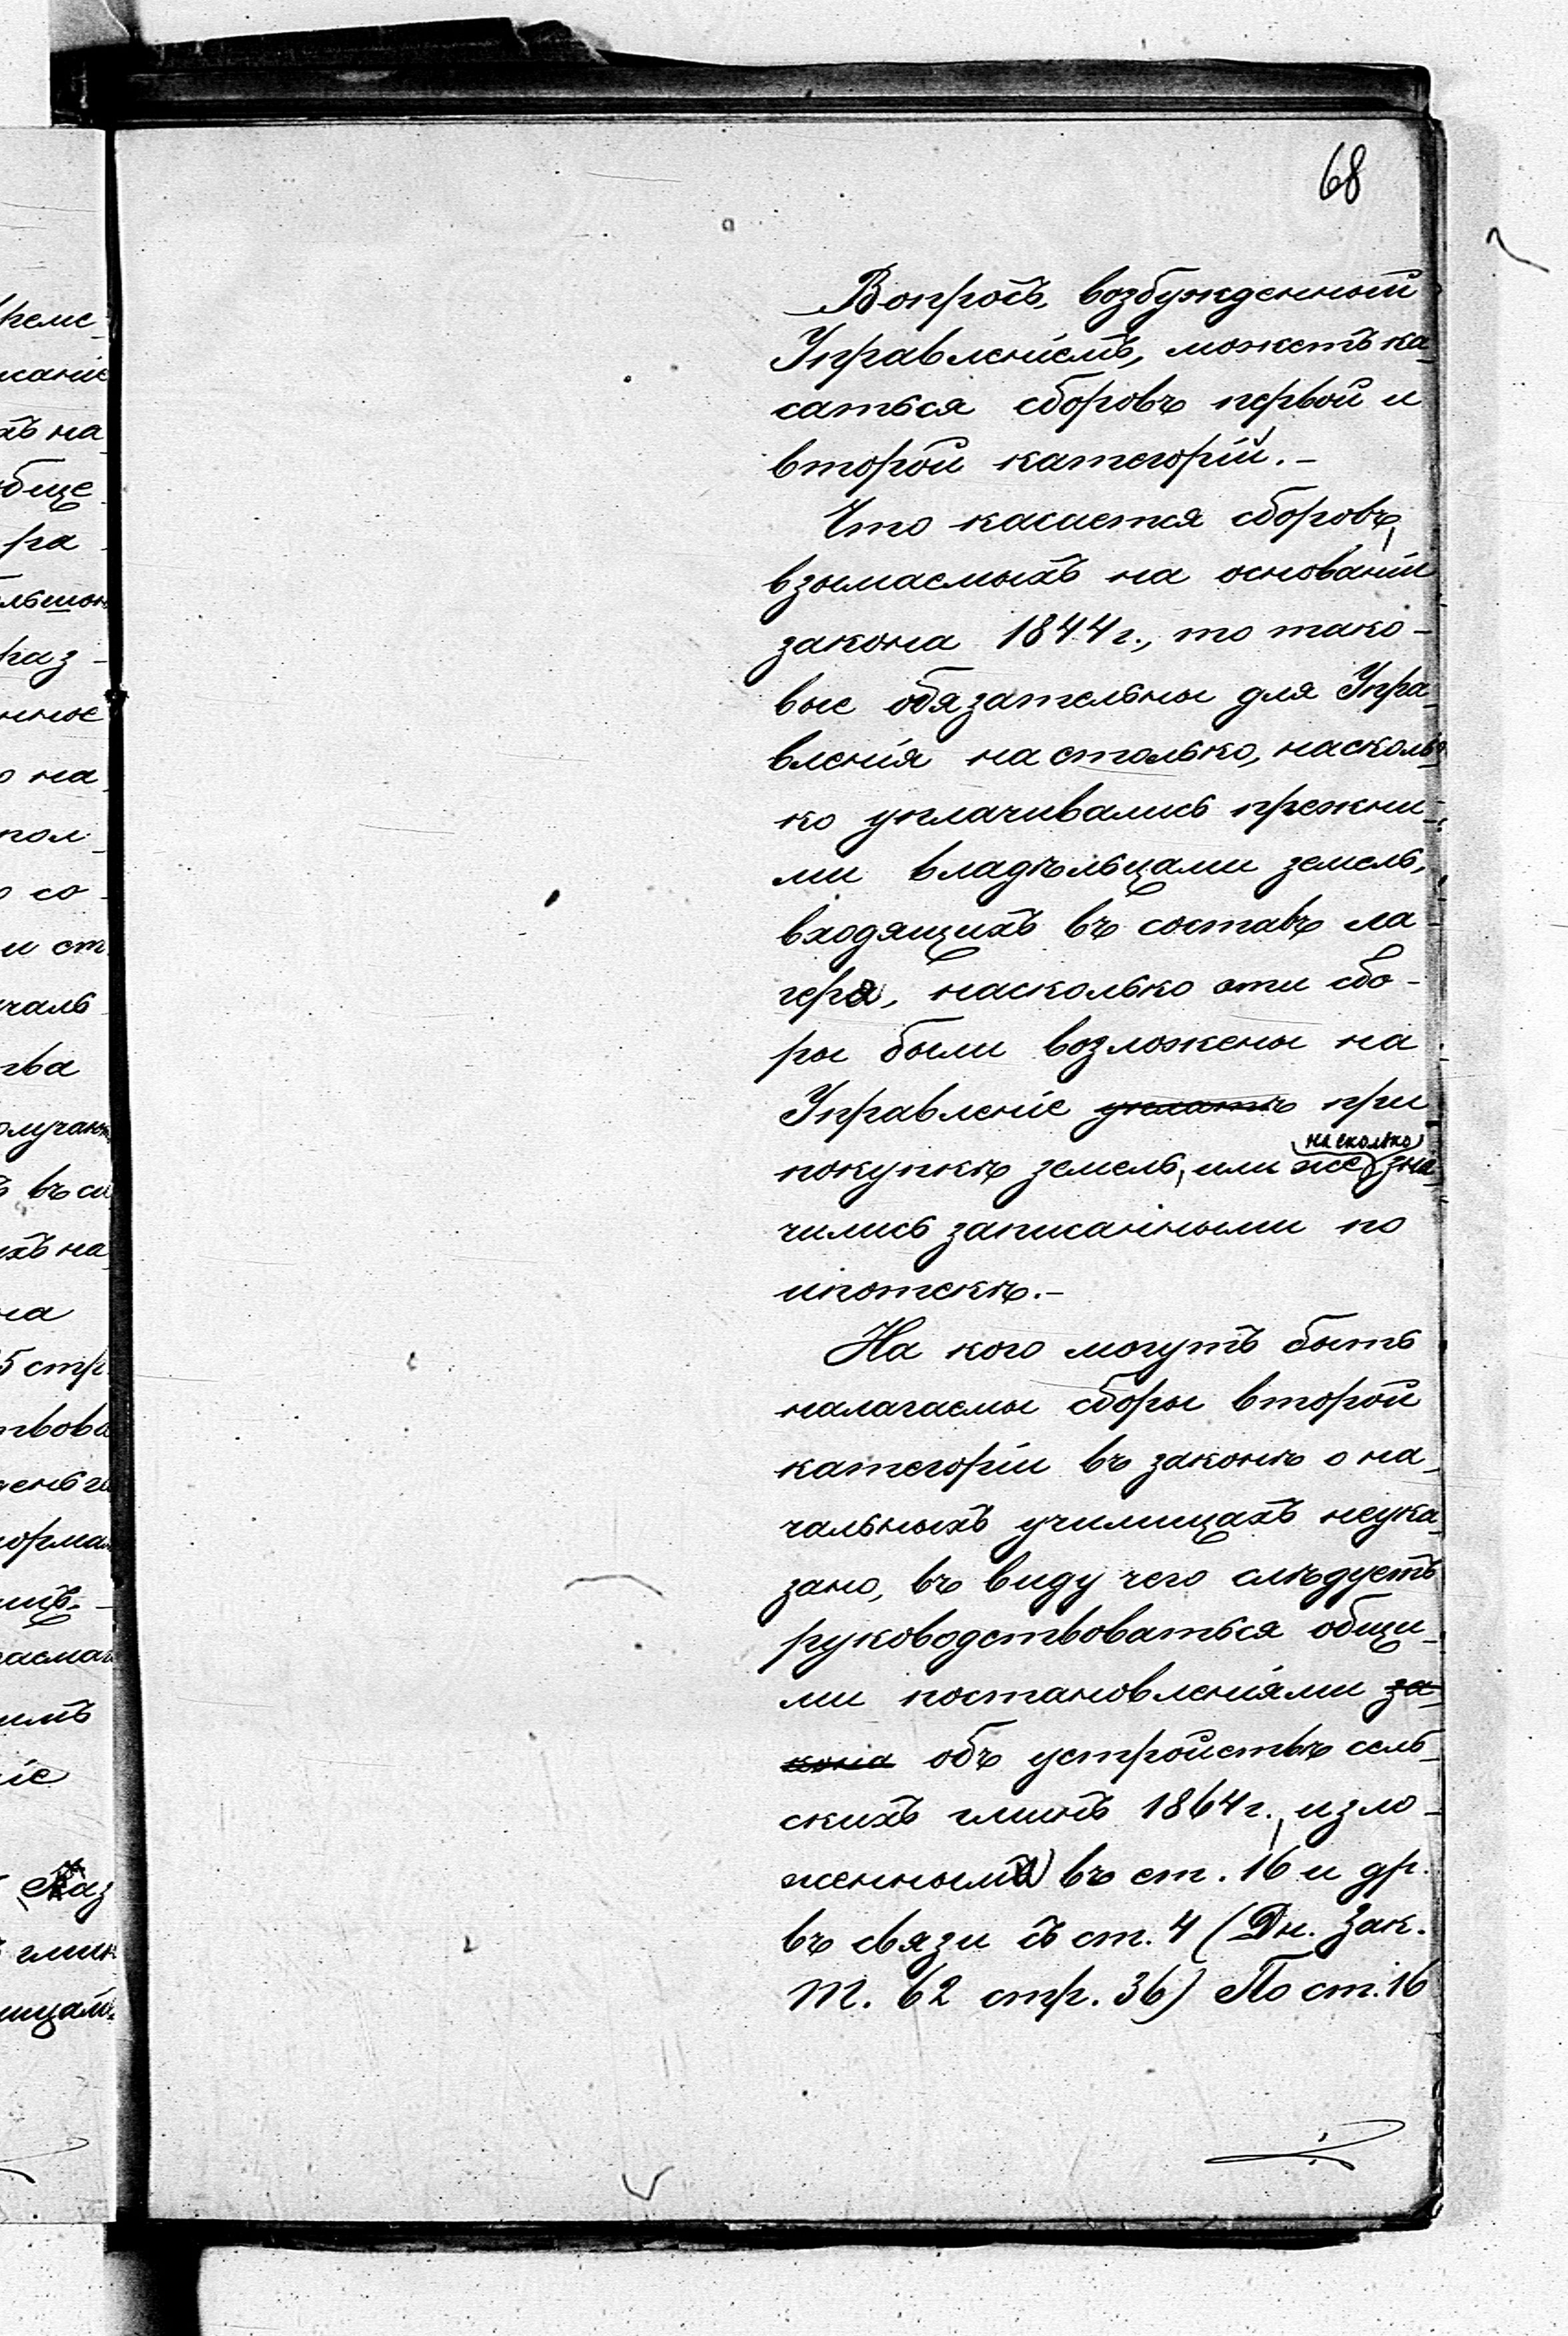 68
Вопросъ, возбужденный
Управленіемъ, можетъ ка-
саться сборовъ первой и
второй категорій.-
Что касается сборовъ,
взымаемыхъ на основаніи
закона 1844 г., то тако-
вые обязательны для Упра-
вленія на столько, насколь-
ко уплачивались прежни-
ми владѣльцами земель,
входящихъ въ составъ ла-
геря, насколько эти сбо-
ры были возложены на
Управленіе уплатѣ при
насколько
покупкѣ земель, или же зна-
чились записанными по
ипотекѣ.-
На кого могутъ быть
налагаемы сборы второй
категоріи въ законѣ о на-
чальныхъ училищахъ неука-
зано, въ виду чего слѣдуетъ
руководствоваться общи-
ми постановленіями за-
кона объ устройствѣ сель-
скихъ гминъ 1864 г., изло-
женными въ ст. 16 и др.
въ связи съ ст. 4 (Дн. Зак.
т. 62 стр. 36) По ст. 16